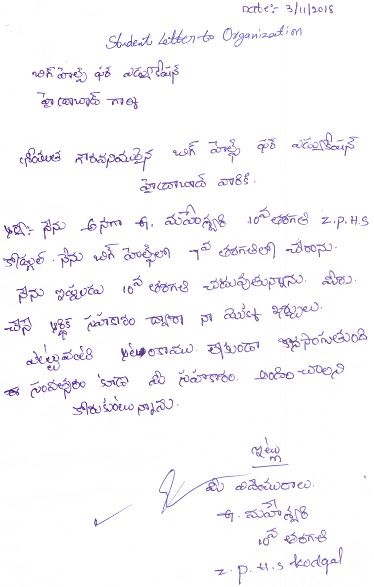 Date:- 3/11/2018
Student Letter to Organization
బిగ్ హెల్ప్ ఫర్ ఎడ్యుకేషన్
హైదరాబాద్ గార్కి
శ్రీయుత గౌరవనియులైన బిగ్ హెల్ప్ ఫర్ ఎడ్యుకేషన్
హైదరాబాద్ వారికి.
నేను అనగా ఈ. మహేశ్వరి 10వ తరగతి Z.P.H.S
కోడ్గల్. నేను బిగ్ హెల్ప్‌లో 7వ తరగతిలో చేరాను.
నేను ఇప్పుడు 10వ తరగతి చదువుతున్నాను. మీరు
చేసే ఆర్థిక సహకారం ద్వారా నా యొక్క ఖర్చులు.
ఈ సంవత్సరం కూడా మీ సహకారం. అందించాలని
కోరుకుంటున్నాను.
ఇట్లు
మీ విధేయురాలు.
ఈ. మహేశ్వరి
10వ తరగతి
Z.P.H.S kodgal